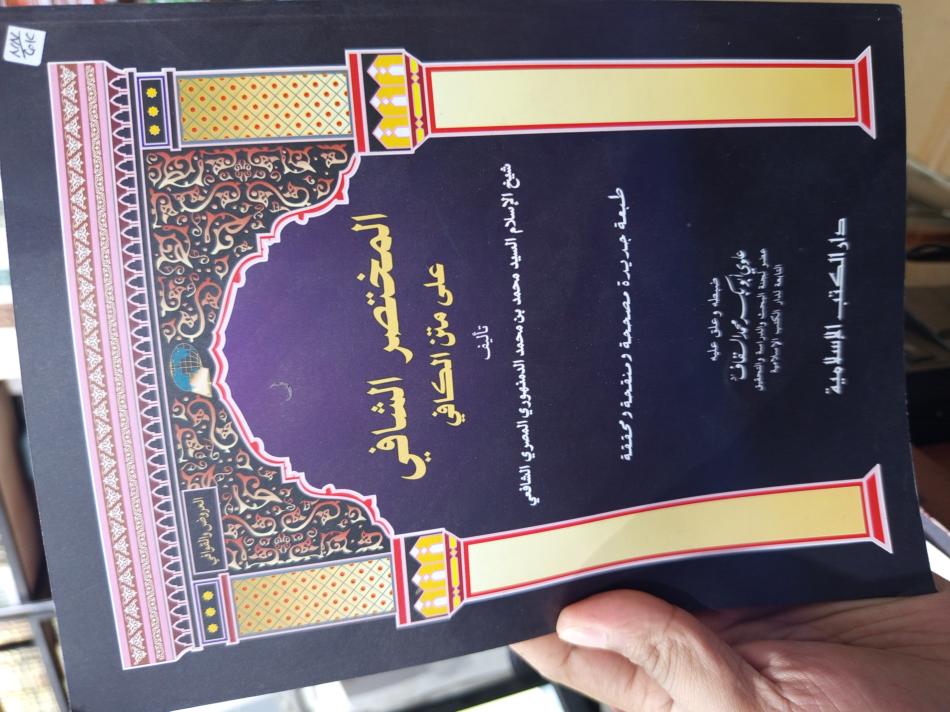 العروض والقوافي
المختصر الشافي
على متن الكافي
تأليف
شيخ الإسلام السيد محمد بن محمد الدمنهوري المصري الشافعي
طبعة جديدة مصححة ومنقحة ومحققة
ضبطه وعلق عليه
علوي أبو بكر محمد السقاف
عضو لجنة البحث والدراسة والتحقيق
التابعة لدار الكتب الإسلامية
دار الكتب الإسلامية